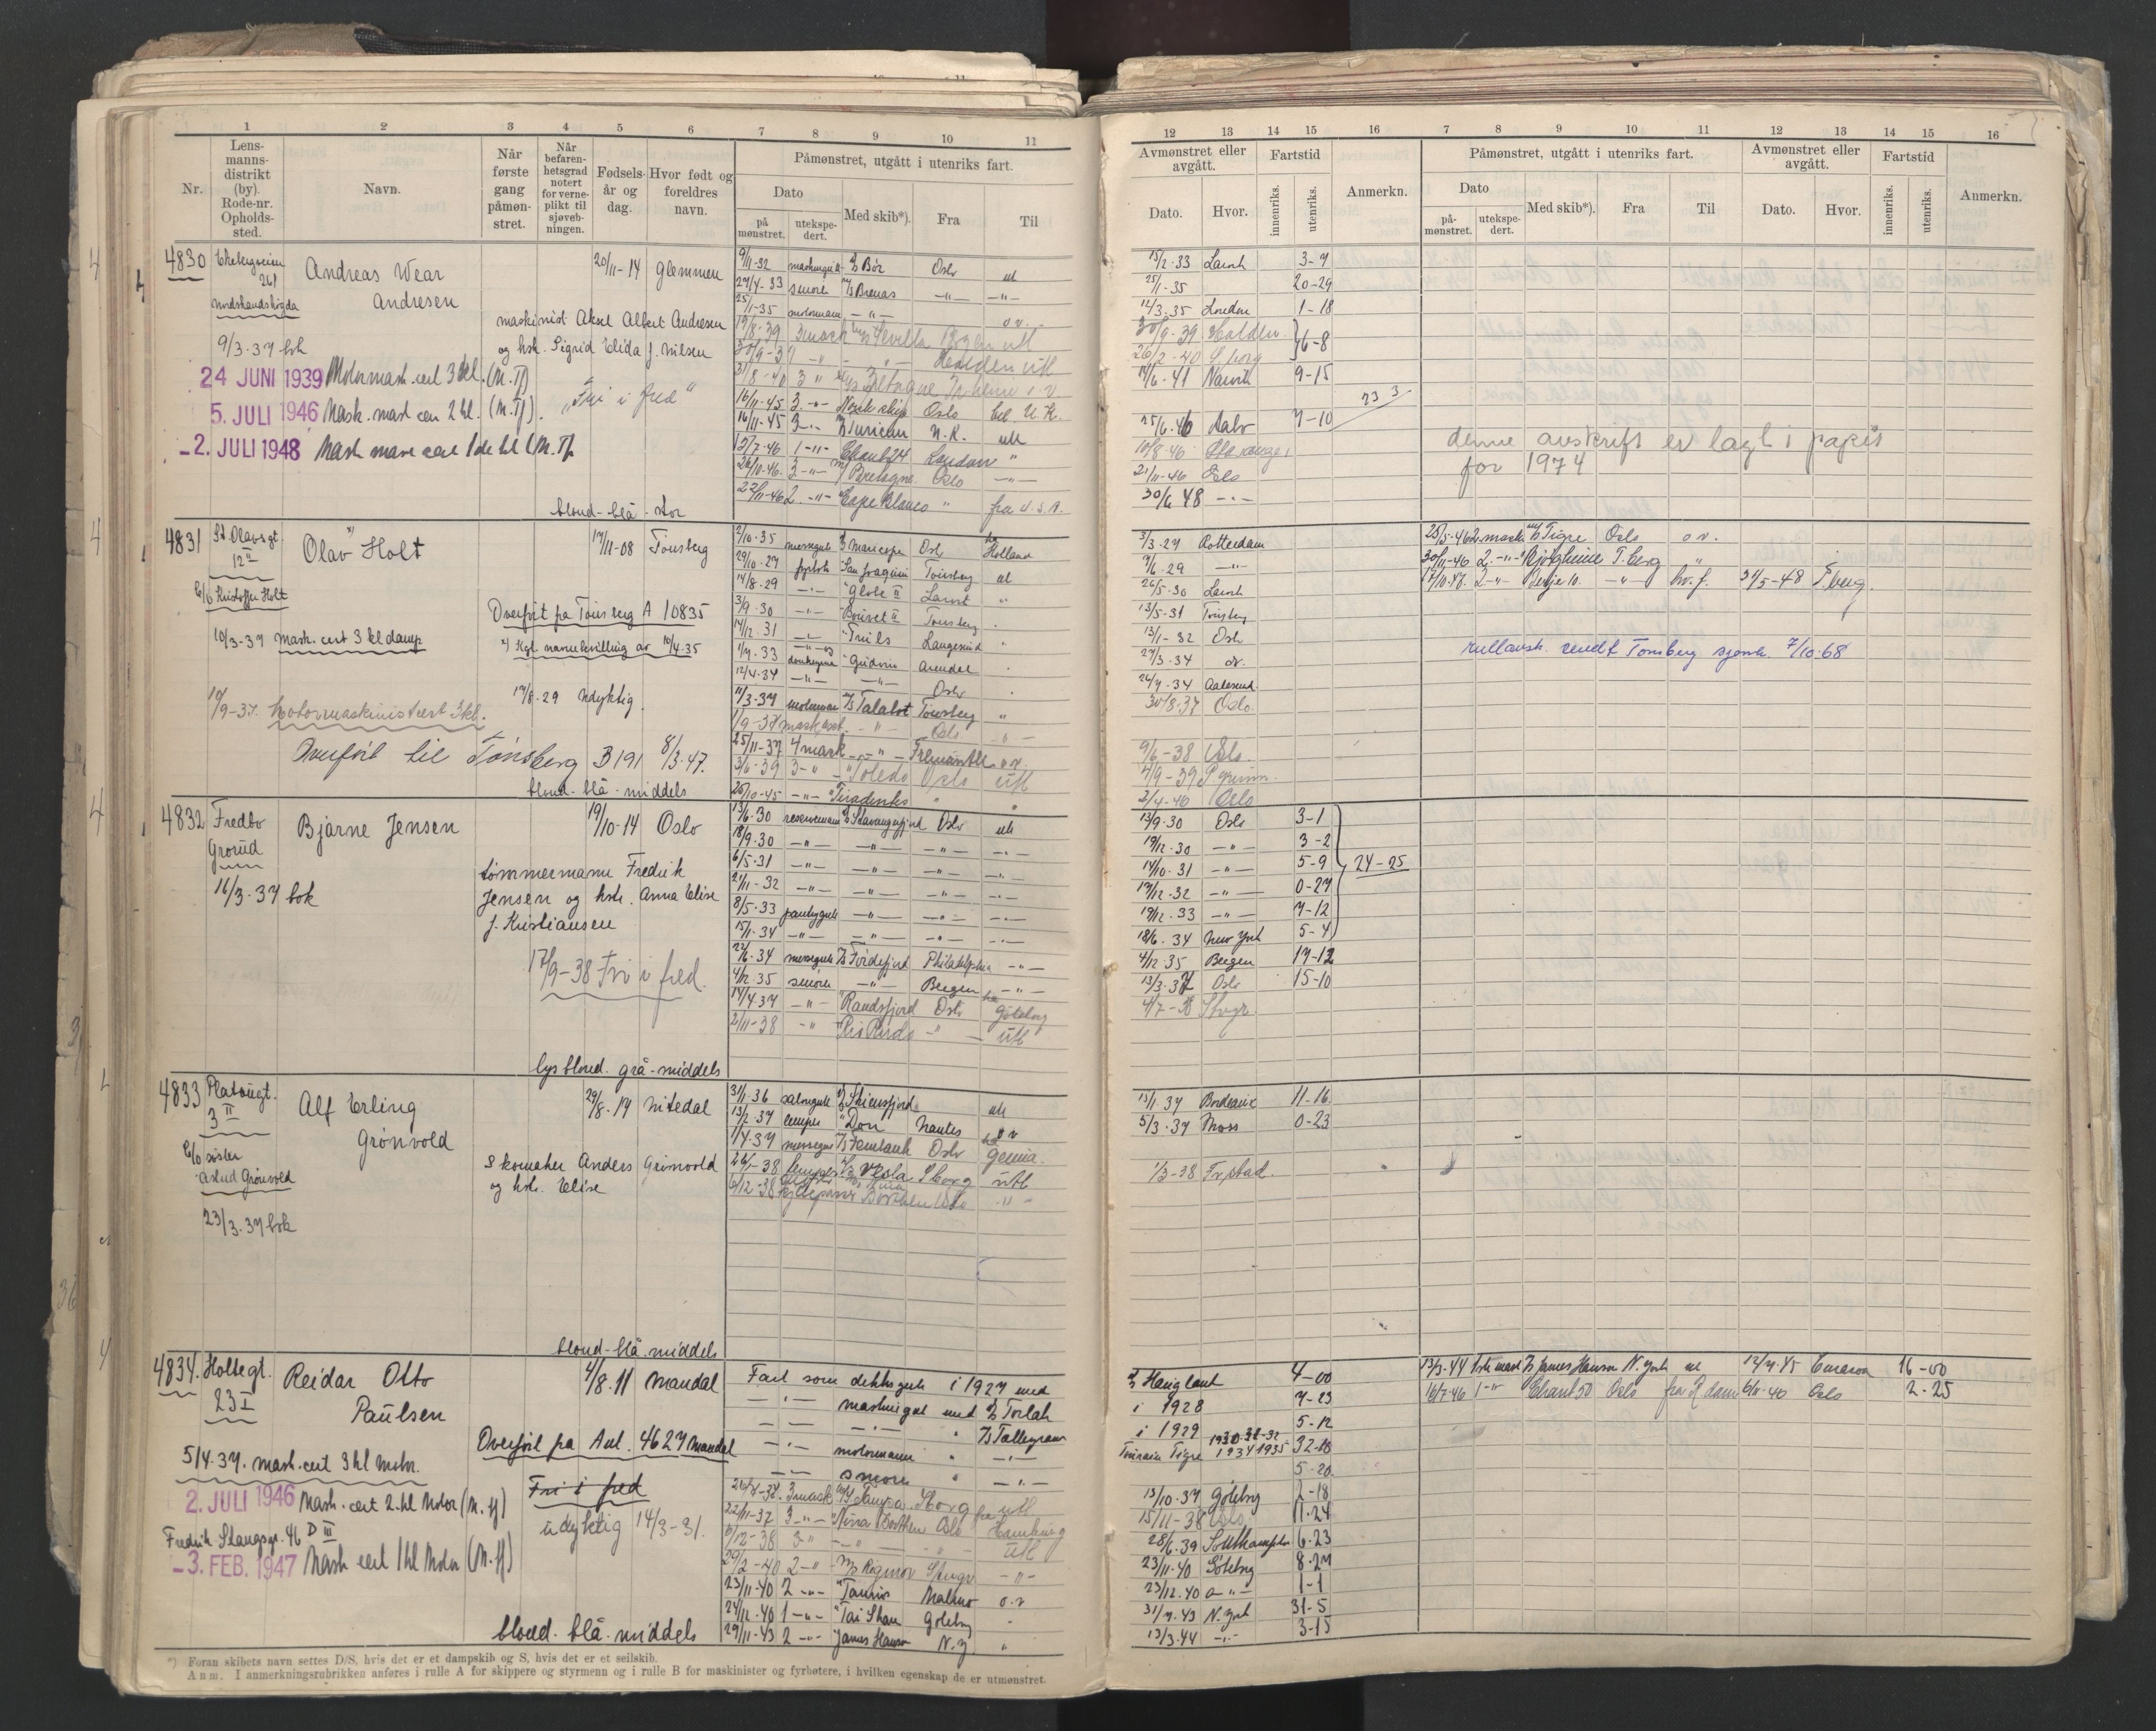 1 2 3 4 5 6 7 8 9 10 11
Nr.
Lensmannsdistrikt (by). Rode-nr. Opholdssted.
Navn.
Når første gang påmønstret.
Når befarenhetsgrad notert for verneplikt til sjøvebningen.
Fødselsår og dag.
Hvor født og foreldres navn.
Påmønstret, utgått i utenriks fart.
Dato
på mønstret.
utekspedert.
Med skib*).
Fra
Til
12 13 14 15 16 7 8 9 10 11 12 13 14 15 16
Avmønstret eller avgått.
Fartstid
Dato.
Hvor.
innenriks.
utenriks.
Anmerkn.
Påmønstret, utgått i utenriks fart.
Dato
påmønstret.
utekspedert.
Med skib*).
Fra
Til
Avmønstret eller avgått.
Dato.
Hvor.
Fartstid
innenriks.
utenriks.
Anmerkn.
4830
Andreas Wear
Andresen
20/11-14 Glemmen
maskinist Aksel Alfert Andresen
og hst. Sigrid Elida f. Nilsen
9/3-37 bok
24 JUNI 1939 Motormask. cert 3 kl. (M.Tf)
"Fri i fred"
5. JULI 1946 Mask. mask cert 2 kl. (M.Tf).
-2. JULI 1948
blond-blå-stor
9/11-32 Bør Oslo ut
27/4-33 smører Brenas -"- -"-
25/1-35 motormann -"- o.v.
19/8-39 3 mask Sevilla Bergen utl
30/9-39 -"- -"- Halden utl
31/8-40 3 " Bretagne o v
16/11-45 3. -"- Norsk skip Oslo bel. U.K.
16/11-45 3 -"- Turican U.K. utl
12/7-46 1 -"- Chant 24 London "
26/10-46 3 -"- Bretagne Oslo -"-
27/11-46 2. -"- Cape Blanco " fra U.S.A.
15/2-33 Larvik 3-9
25/1-35 20-29
12/3-35 London 1-18
30/9-39 Halden
26/2-40 S.borg 6-8
14/6-41 Narvik 9-15
23 3
25/6-46 7-10
10/8-46
21/11-46 Oslo
30/6 48 -"-
denne avskrift er lagt i papir
for 1974
4831 St. Olavsgt.
12 II
Olav x) Holt
17/11-08 Tønsberg
C/o Kristoffer Holt
Overført på Tønsberg A 10835
10/3-37 mask. cert 3 kl damp
x) Kgl. navnebevilling av 10/4-35
17/8-29 Udyktig.
Motormaskinistcert 3 kl.
Overført til Tønsberg B 191 8/3-47.
blond-blå-middels
2/10-35 messegutt Oslo Holland
29/10-27 fyrbøter San Joaquin Tønsberg ut
14/8-29 -"- "Globe II Larvik "
3/9-30 -"- "Bouvet II Tønsberg "
14/12-31 -"- "Truls Langesund "
1/7-33 donkeym. "Gudrun Arendal
12/4-34 -"- -"- Oslo
11/3-37 motorman Talabot Tønsberg "
1/9-37 mask.ass. -"- Oslo -"-
25/11-37 4 mask -"- Fremantle o v.
3/6-39 3 -"- "Toledo Oslo utl
25/10-45 -"- "Tiradentes " "
3/3-29 Rotterdam
7/6-29 -"-
26/5-30 Larvik
13/5-31 Tønsberg
13/1-32 Oslo
27/3-34
26/7-34 Aalesund
30/8-37 Oslo.
9/6-38 Oslo.
4/9-39
2/4-40 Oslo
25/5-46 2. mask Tigre Oslo o v.
30/11-46 2. -"- Bjørgheim T.berg "
17/10-47 2 -"- -"- hv.f. 31/5-48 T.berg.
rullavsk. sendt Tønsberg sjømk. 7/10-68
4832 Fredbo
Grorud
Bjarne Jensen
19/10-14 Oslo
16/3-37 bok
tømmermann Fredrik
Jensen og hst. Anna Elise
f. Kristiansen
17/9-38 Fri i fred.
lys blond. grå-middels
13/6-30 Stavangerfjord Oslo ut
18/9-30 -"- -"- -"- -"-
6/5-31 -"- -"- -"- -"-
21/11-32 -"- -"- -"- -"-
8/5-33 pantrygutt -"- -"- -"-
15/1-34 -"- -"- -"- -"-
22/6-34 messegutt Fördefjord Philadelphia -"-
4/12-35 smører -"- Bergen -"-
14/4-37 -"- "Randsfjord Oslo Göteborg
2/11-38 -"- -"- utl
13/9-30 Oslo 3-1
19/12-30 -"- 3-2
14/10-31 -"- 5-9
17/12-32 -"- 0-27
19/12-33 -"- 7-12
18/6-34 New York 5-4
24-25
4/12-35 Bergen 17-12
13/3-37 Oslo 15-10
4/7-38
4833 Platougt.
3 II
Alf Erling
Grønvold
29/8-17 Nitedal
C/o søster
Astrid Grønvold
skomaker Anders Grønvold
og hst. Elise
23/3-37 bok
blond-blå-middels
31/1-36 salongutt Skiensfjord ut
13/2-37 lemper "Don Nantes o v
1/4-37 messegut Oslo
26/1-38 lemper Vesla S.borg utl
6/12-38 -"-
15/1-37 Bordeaux 11-16.
5/3-37 Moss 0-23
1/3-38 Fr.stad.
4834. Holtegt.
23 I
Reidar Otto
Paulsen
4/8-11 Mandal
Overført på Anl. 4627 Mandal
5/4-37. mask. cert 3 kl Motor.
2. JULI 1946 Mask. cert 2. kl Motor (M.Tf)
Fri i fred
udyktig 14/3-31.
Fredrik Stangsgt. 46 D III
-3. FEB. 1947 Mask cert 1 kl Motor (M.Tf)
blond-blå-middels
Fart som dekksgutt i 1927 med
-"- maskingut med Torlak
-"- -"- " Tallegram
-"- motormann " -"-
-"- smører " -"-
26/8-37 3 mask S.borg utl
22/11-37 3 -"- Oslo Hamburg
6/12-38 3 " -"- -"- utl
29/2-40 2 -"- -"-
23/11-40 2 -"- "Tauris Malmø o.v
24/12-40 1 -"- "Tai Shan Göteborg "
29/11-43 2 -"- James Hawson N.Y. "
Haugland 4-00
i 1928 7-23
i 1929 5-12
Touraine Tigre 1930-31-32 1934 1935 32-18
5-20.
13/10-37 Göteborg 2-18
15/11-38 Oslo 11-24
28/6-39 Southampton 6-23
23/11-40 Göteborg 8-27
23/12-40 -"- 1-1
31/7-43 N. York 31-5
13/3-44 -"- 3-15
13/3-44 1ste mask James Hawson N. York ut 12/7-45 Curacao 16-00
16/7-46 1 -"- Chant 50 Oslo fra R.dam 6/11-40 Oslo 2-25
*) Foran skibets navn settes D/S, hvis det er et dampskib og S, hvis det er et seilskib.
Anm. I anmerkningsrubrikken anføres i rulle A for skippere og styrmenn og i rulle B for maskinister og fyrbøtere, i hvilken egenskap de er utmønstret.